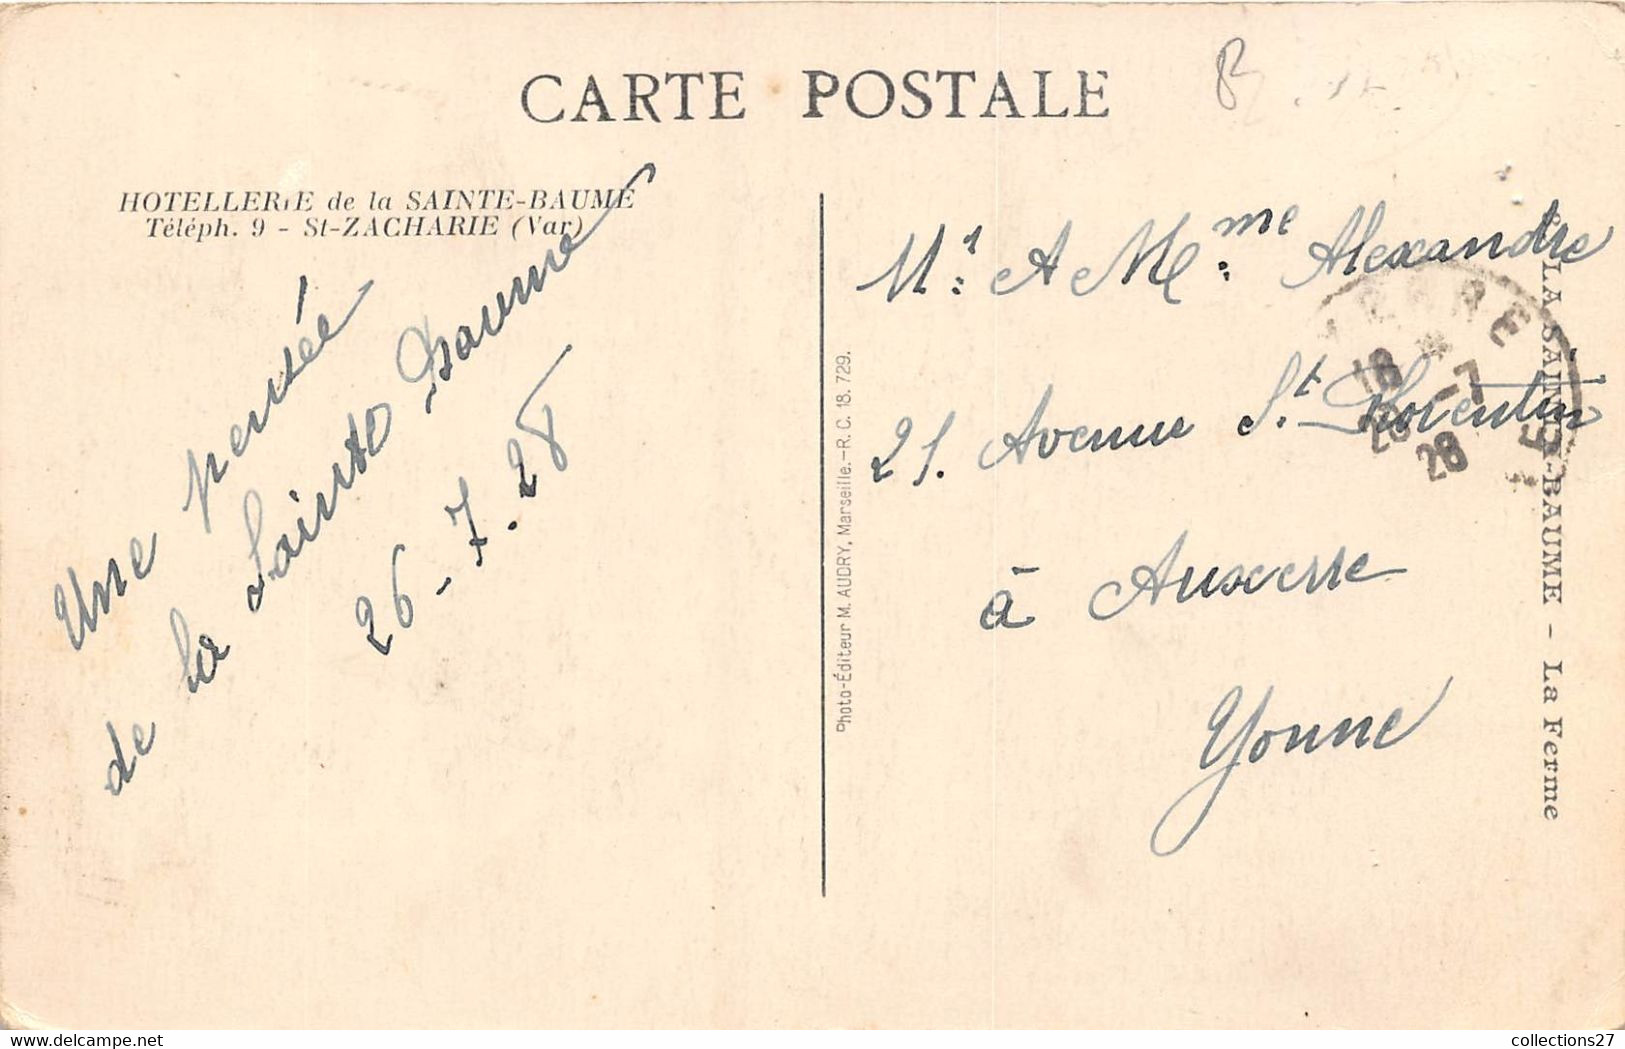 CARTE POSTALE
HOTELLERIE de la SAINTE-BAUME
Téléph. 9 - St-ZACHARIE (Var)
Une pensée
de la Sainte Baume
26-7.28
Photo-Éditeur M. AUDRY, Marseille.-R. C. 18.729.
Mr: A Mme: Alexandre
21. Avenue St. Florentin
à Auxerre
Yonne
LA SAINTE-BAUME - La Ferme
28
collections27